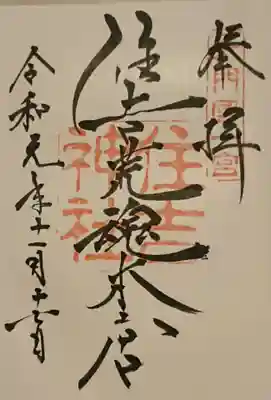 奉拝
住吉荒魂本宮
住吉
神社
令和元年十一月十六日